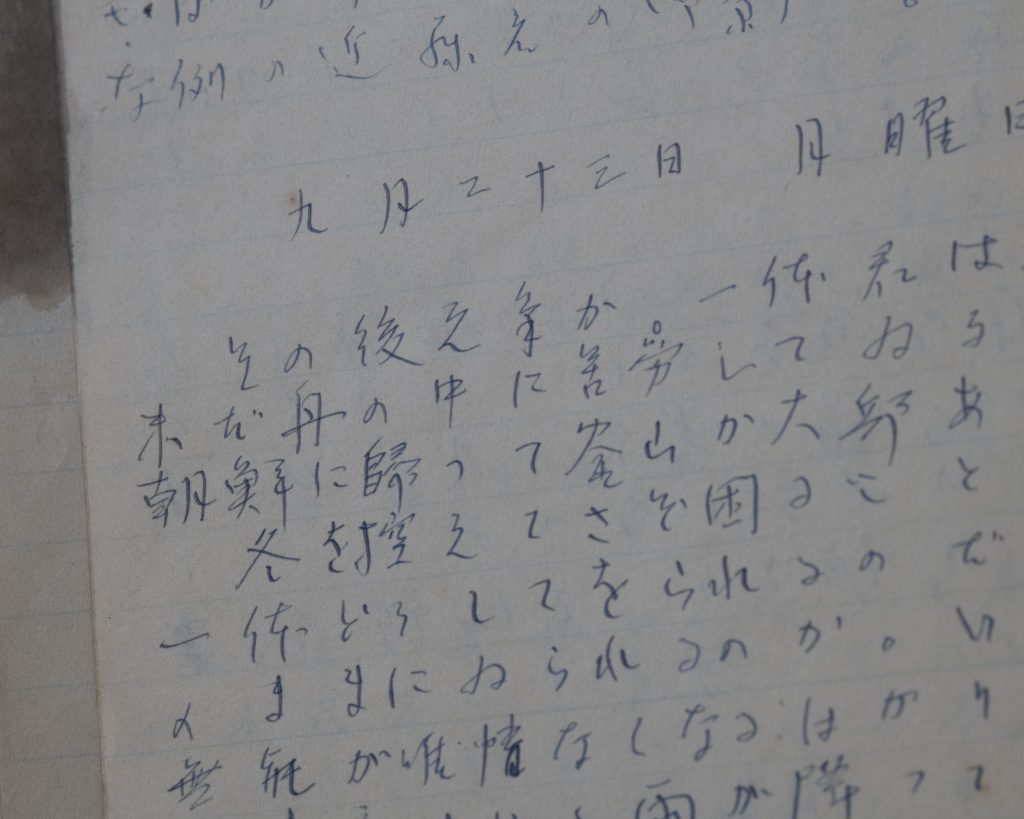 な例の近
九月二十三日 月曜日
その後元 か 一体君は
未だ丹の中に苦労してゐる
朝鮮に歸って釜山か大邱あ
冬を控えてさぞ困ること
一体どうしてをられるのだ
まゝにゐられるのか。い
無 が 情なくなるばかり
雨が降って